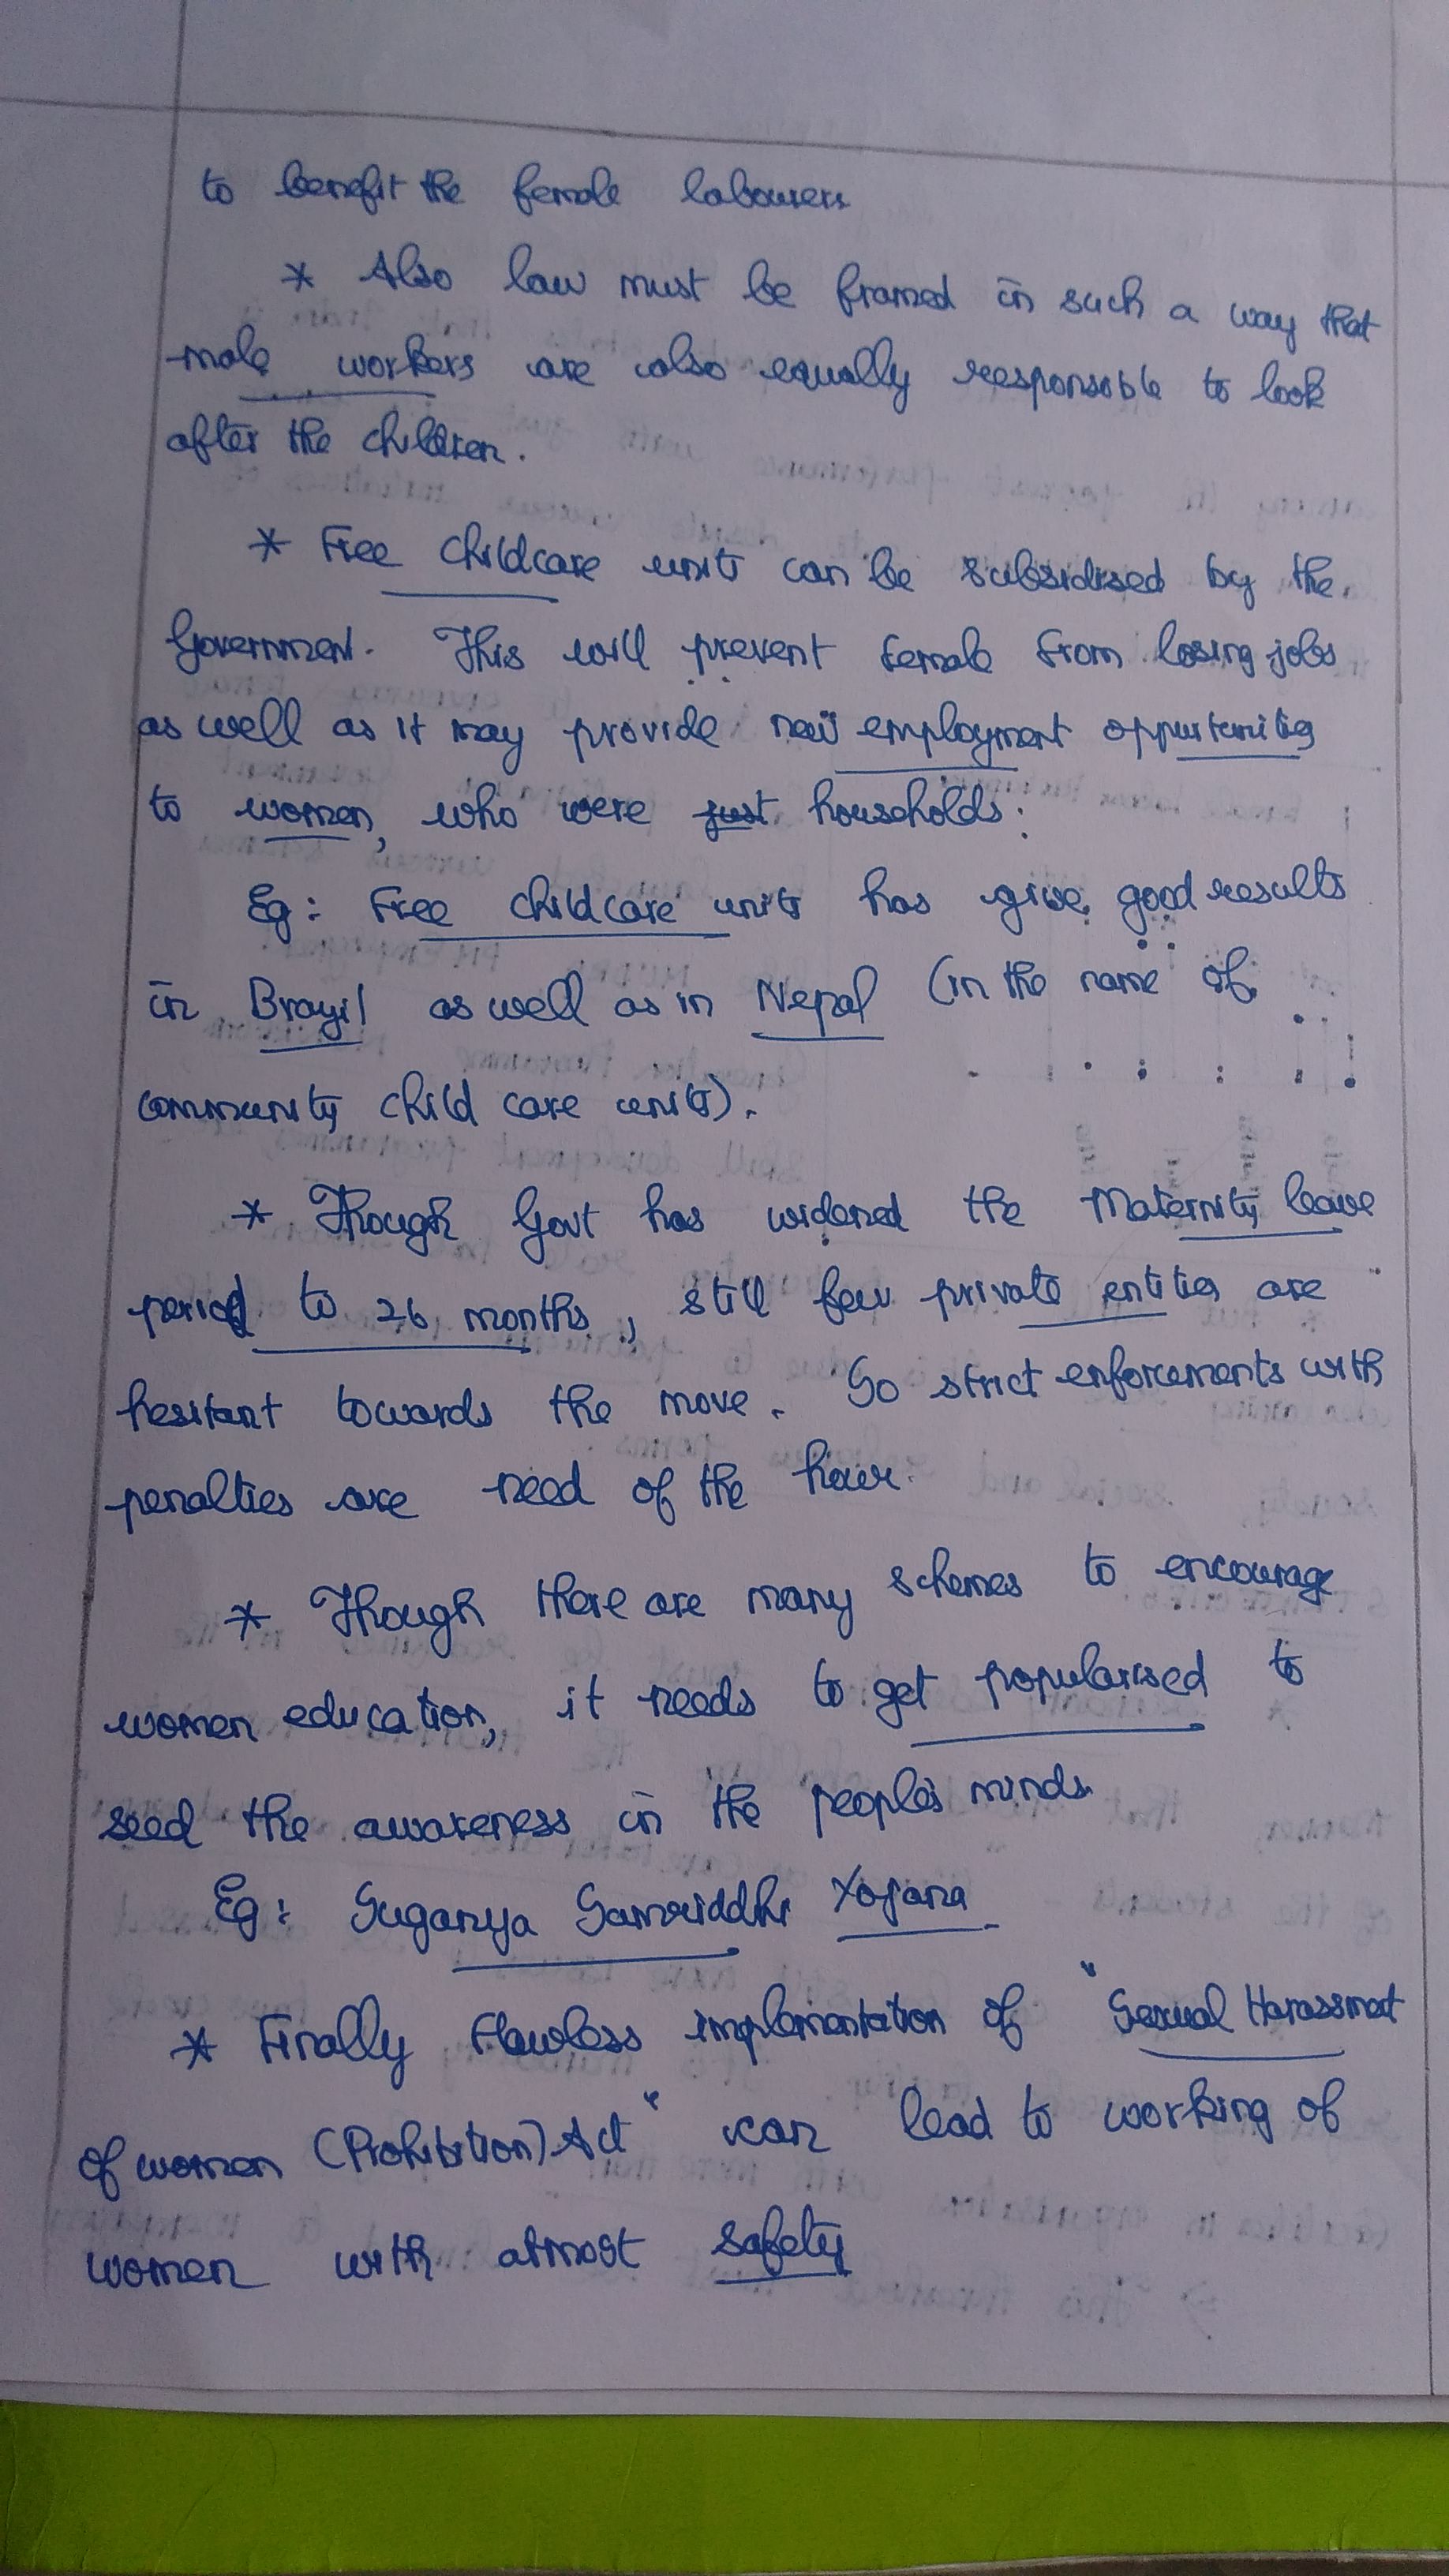 to benefit the female labourers
* Also law must be framed in such a way that
male workers are also equally responsible to look
after the children.
* Free childcare units can be subsidised by the
Government. This will prevent female from losing jobs
as well as it may provide new employment oppurtunities
to women, who were just households.
Eg: Free childcare units has give good results
in Brazil as well as in Nepal (in the name of
community child care units).
* Though Govt has widened the Maternity leave
period to 26 months, still few private entities are
hesitant towards the move. So strict enforcements with
penalties are need of the hour.
* Though there are many schemes to encourage
women education, it needs to get popularised to
seed the awareness in the people's minds
Eg: Suganya Samriddhi Yojana
* Finally Flawless implementation of "Sexual Harassment
of women (Prohibition) Act" can lead to working of
women with atmost safety